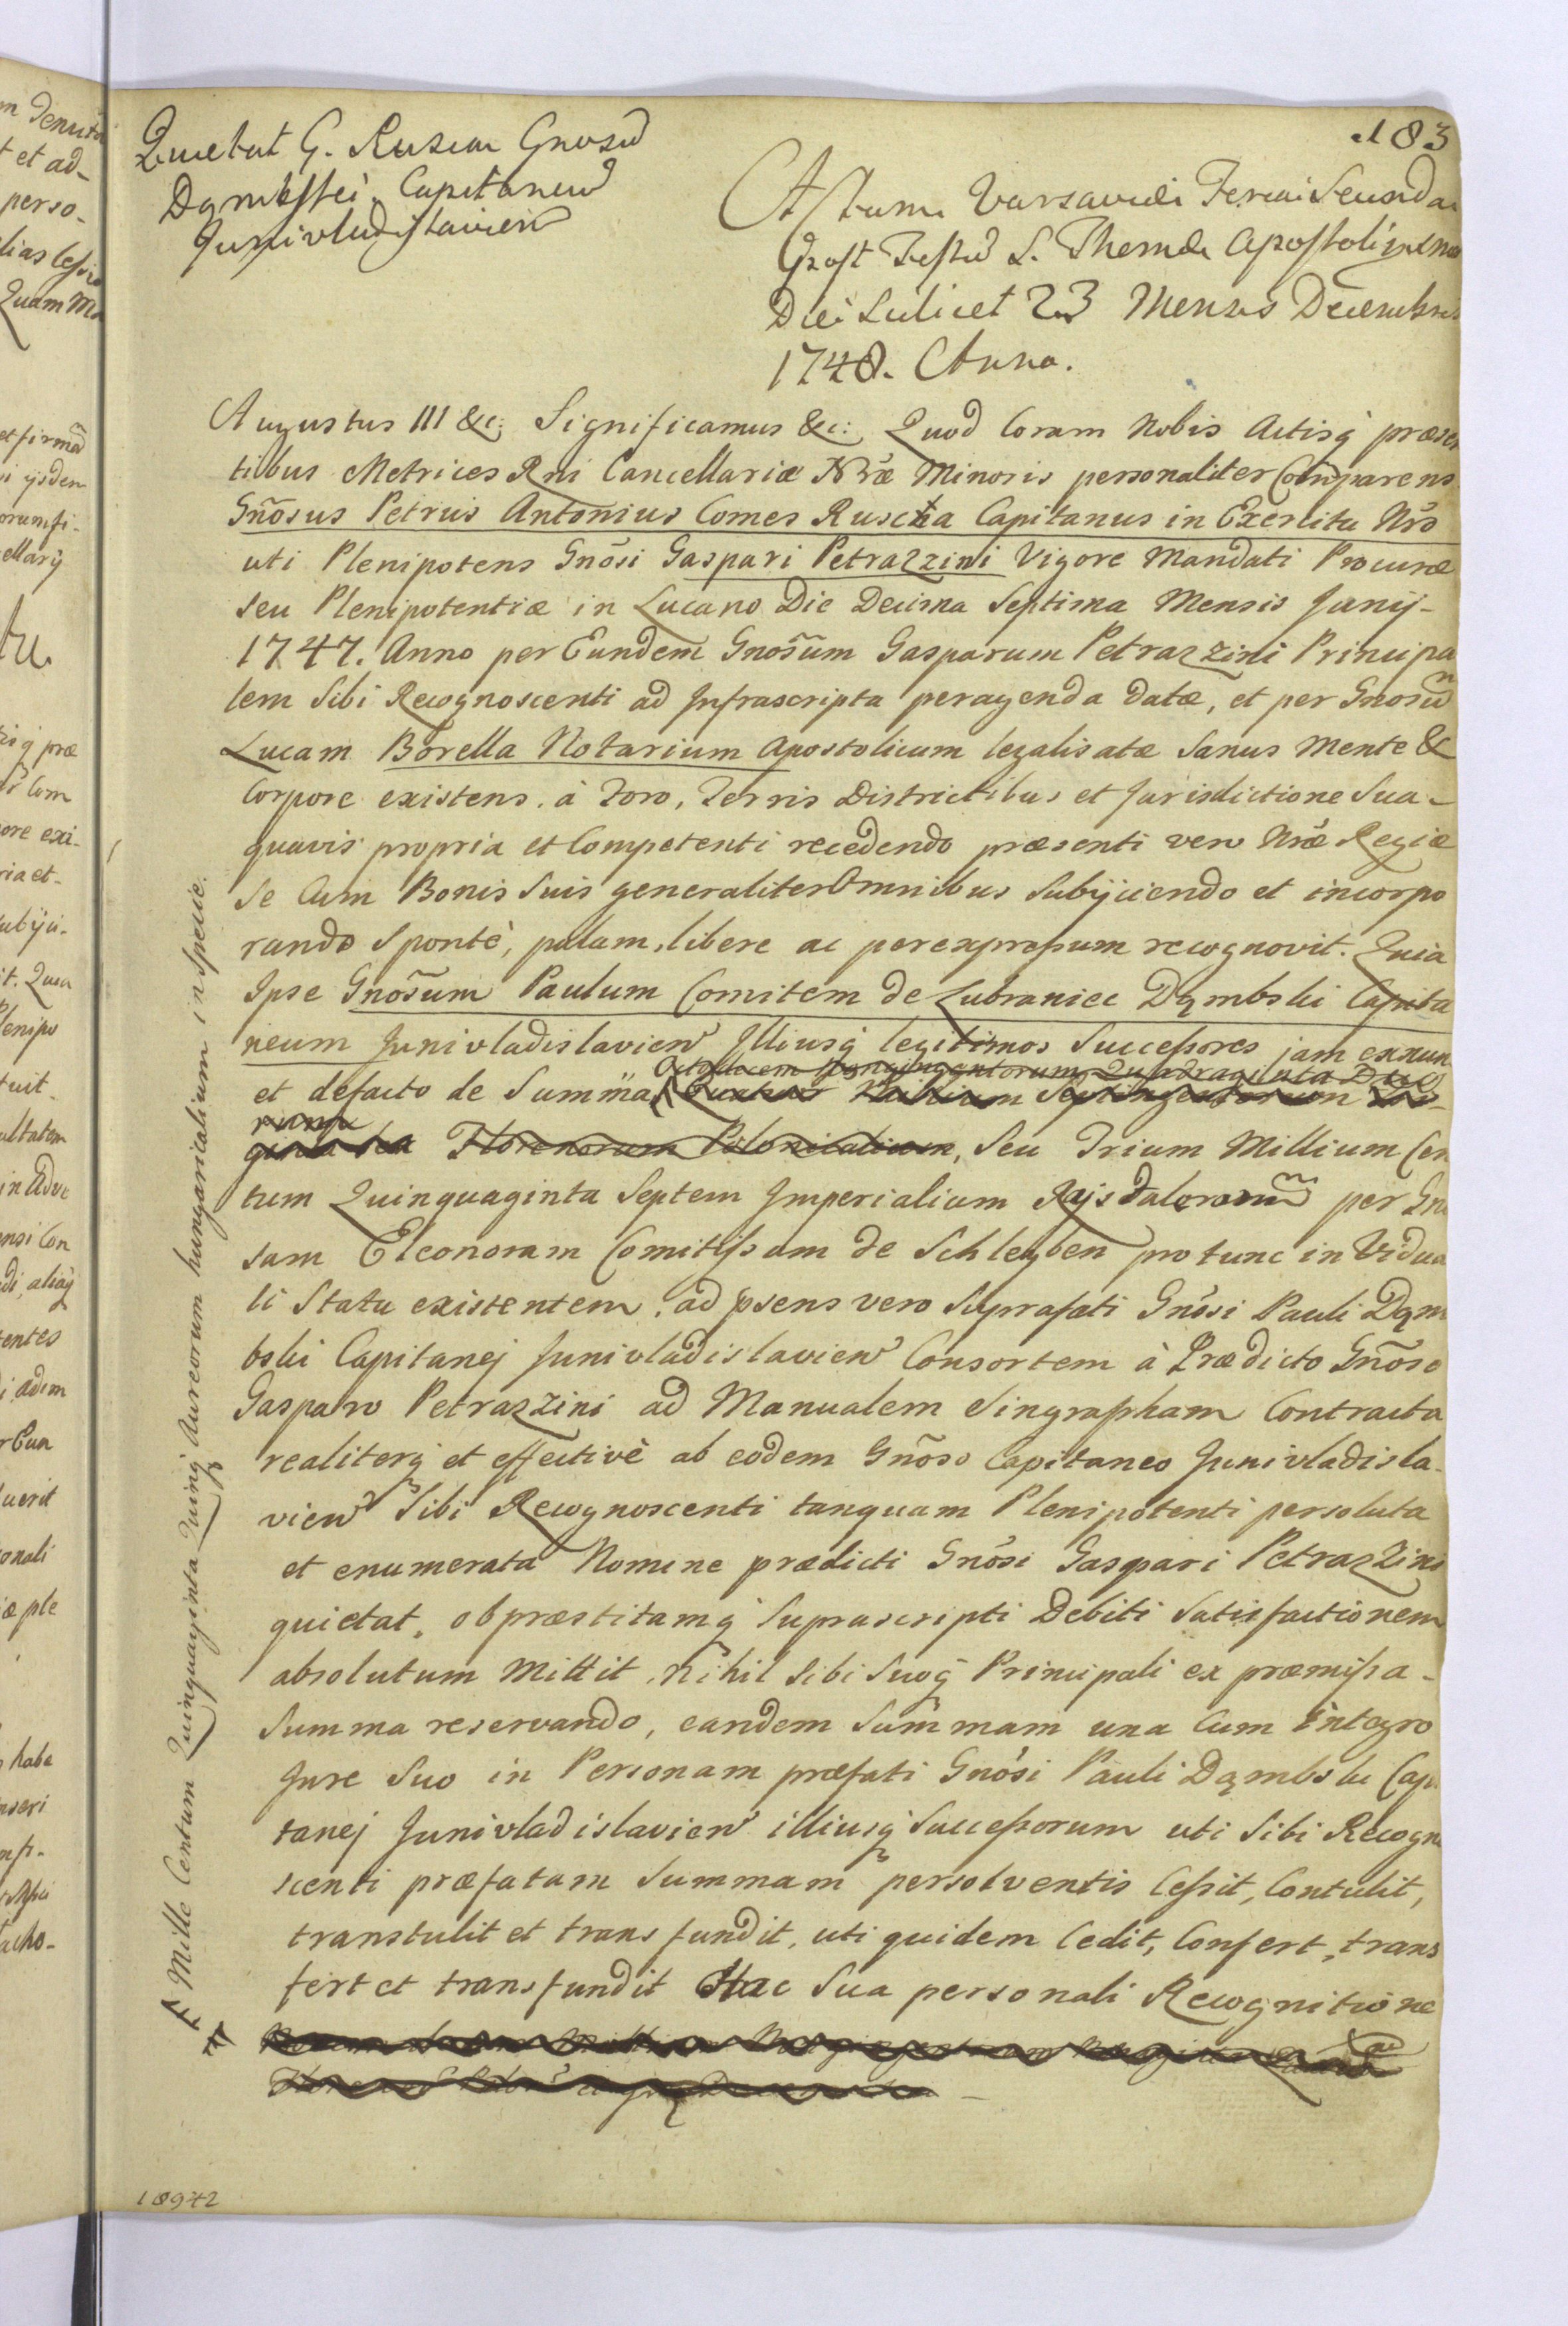 183
Quietat G. Rusca Gnosũ
Dąmbski Capitaneũ
Junivladislavien
Actum Varsaviæ Feria Secunda
post Festũ S. Thomæ Apostoli
Die scilicet 23 Mensis Decembris
1748. Anno.
Augustus III &c: Significamus &c: Quod Coram Nobis Actisq́ præsen
tibus Metrices Rni Cancellariæ Nræ Minoris personaliter Comparens
Gnõsus Petrus Antonius Comes Ruscha Capitanus in Exercitu Nrõ
uti Plenipotens Gnõsi Gaspari Petrazzini Vigore Mandati Procuræ
seu Plenipotentiæ in Lucano Die Decima Septima Mensis Junij-
1747. Anno per Eundem Gnosũm Gasparum Petrazzini Principa
lem Sibi Recognoscenti ad Infrascripta peragenda Datæ, et per Gnosũ
Lucam Borella Notarium Apostolicum legalisatæ Sanus Mente &
Corpore existens. à Foro, Terris Districtibus et Jurisdictione Sua-
quavis propria et Competenti recedendo præsenti vero Nræ Regiæ
Se Cum Bonis Suis generaliter Omnibus Subijciendo et incorpo
rando Spontè, palam, libere ac per expressum recognovit. Quia
Ipse Gnosũm Paulum Comitem de Lubraniec Dąmbski Capita
neum Junivladislavien Illiusq́ legitimos Successores jam exnun
Octodecem Nongingentorum Quadraginta Duo
et defacto de Summa Quatuor Millium Septingentorum
rum
ginta Florenorum Polonicalium, Seu Trium Millium Cen
tum Quinquaginta Septem Imperialium Rajsdalororum per Gno
sam Eleonoram Comitissam de Schleyben pro tunc in Vidua
li Statu existentem, ad psens vero Suprafati Gnõsi Pauli Dąm
bski Capitanej Junivladislavien Consortem à Prædicto Gnõso
Gasparo Petrazzini ad Manualem Singrapham Contracta
realiterq́ et effectivè ab eodem Gnõso Capitaneo Junivladisla
vien Sibi Recognoscenti tanquam Plenipotenti persoluta
et enumerata Nomine prædicti Gnõsi Gaspari Petrazzini
quietat, ob præstitamq́ Suprascripti Debiti Satisfactionem
absolutum Mittit, nihil Sibi Suoq́ Principali ex præmissa-
Summa reservando, eandem Summam una Cum integro
Jure Suo in Personam præfati Gnõsi Pauli Dąmbski Capi
tanej Junivladislavien illiusq́ Successorum uti Sibi Recogno
scenti præfatam Summam persolventis Cessit, Contulit,
transtulit et transfundit, uti quidem Cedit, Confert, trans
fert et transfundit Hac Sua personali Recognitione
Mille Centum Quinquaginta Quinq́ Aureorum hungaricalium in Specie.
18942